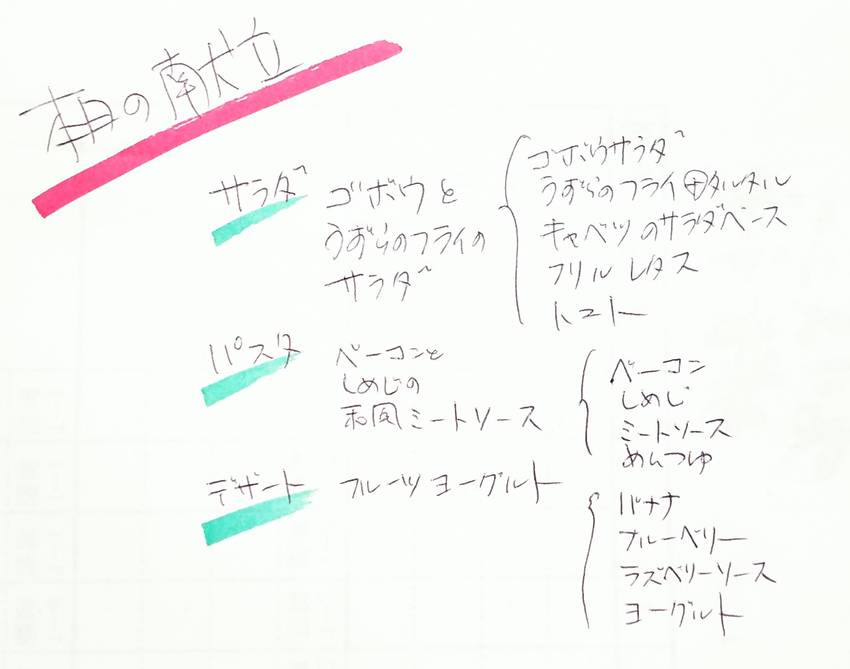 本日の献立
サラダ
ゴボウと
うずらのフライの
サラダ
ゴボウサラダ
うずらのフライ⊕タルタル
キャベツのサラダベース
フリルレタス
トマト
パスタ
ベーコンと
しめじの
和風ミートソース
ベーコン
しめじ
ミートソース
めんつゆ
デザート
フルーツヨーグルト
バナナ
ブルーベリー
ラズベリーソース
ヨーグルト